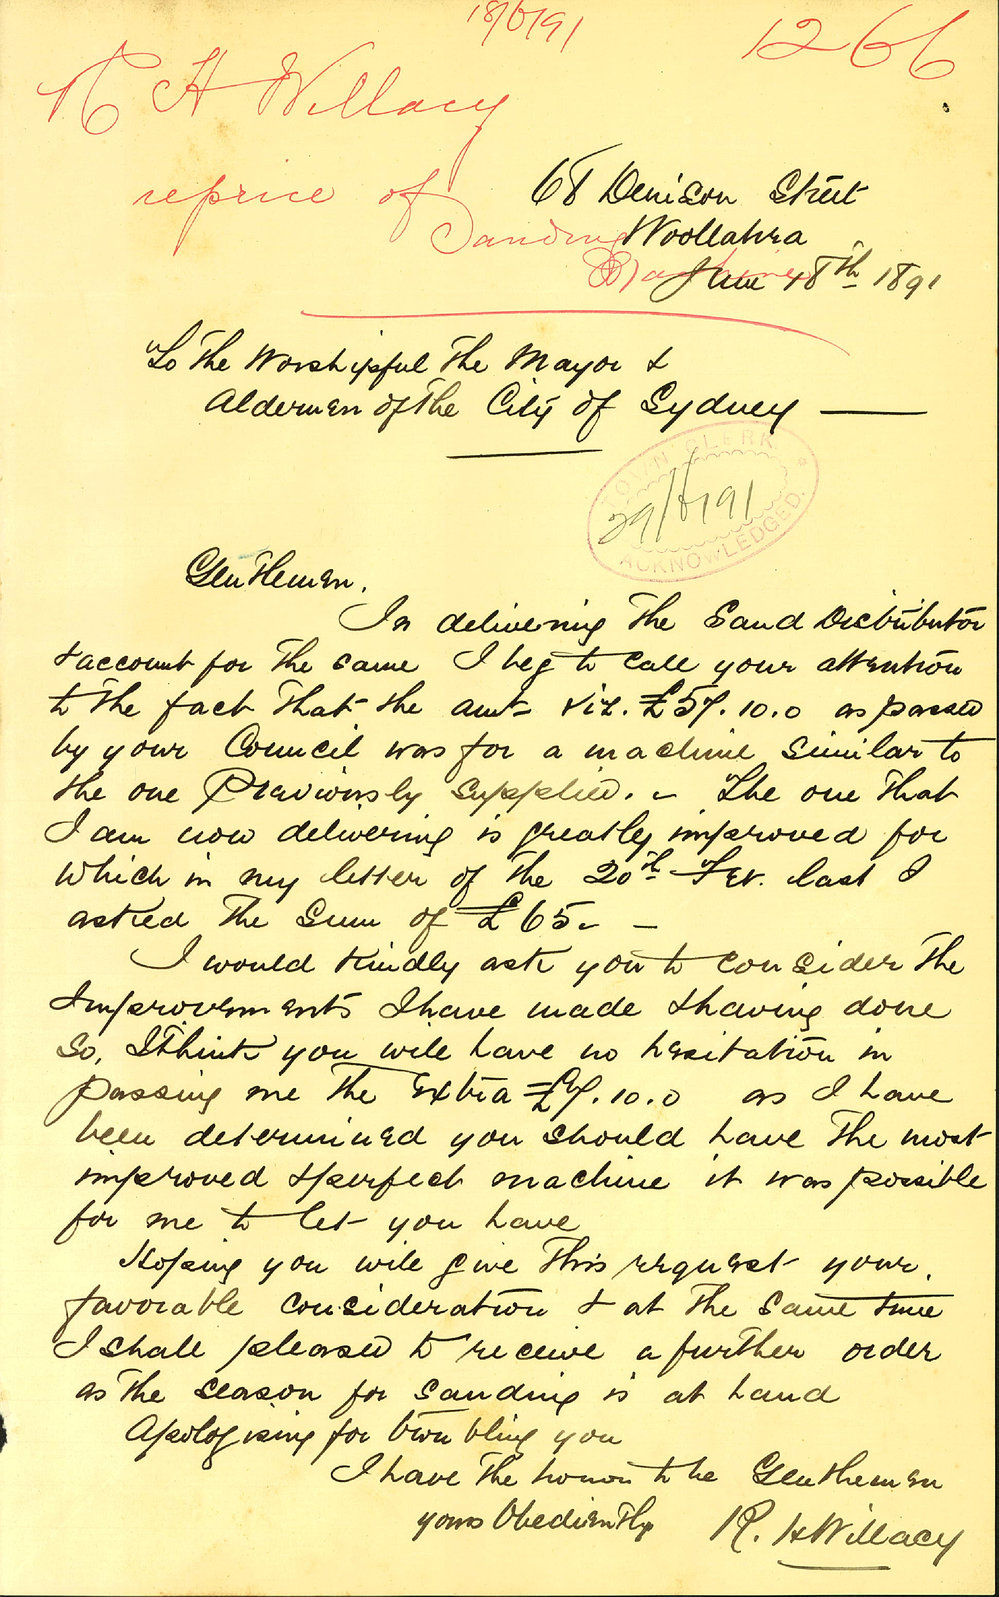 18/6/91
1266
R H Willacy
reprice of
Sanding
Machine
68 Denison Street
Woollahra
June 18th 1891
To the Worshipful the Mayor &
Aldermen of the City of Sydney
TOWN CLERK
29/6/91
ACKNOWLEDGED.
Gentlemen.
In delivering the Sand Distributor
& account for the same I beg to call your attention
to the fact that the amt viz. £57.10.0 as passed
by your Council was for a machine similar to
the one Previously supplied. - The one that
I am now delivering is greatly improved for
which in my letter of the 20th Feb. last I
asked the Sum of £65 - -
I would kindly ask you to consider the
Improvements I have made & having done
so, I think you will have no hesitation in
passing me the extra £7.10.0 as I have
been determined you should have the most
improved & perfect machine it was possible
for me to let you have
Hoping you will give this request your
favorable consideration & at the same time
I shall pleased to receive a further order
as the season for sanding is at hand
Apologising for troubling you
I have the honor to be Gentlemen
yours Obediently R. H Willacy